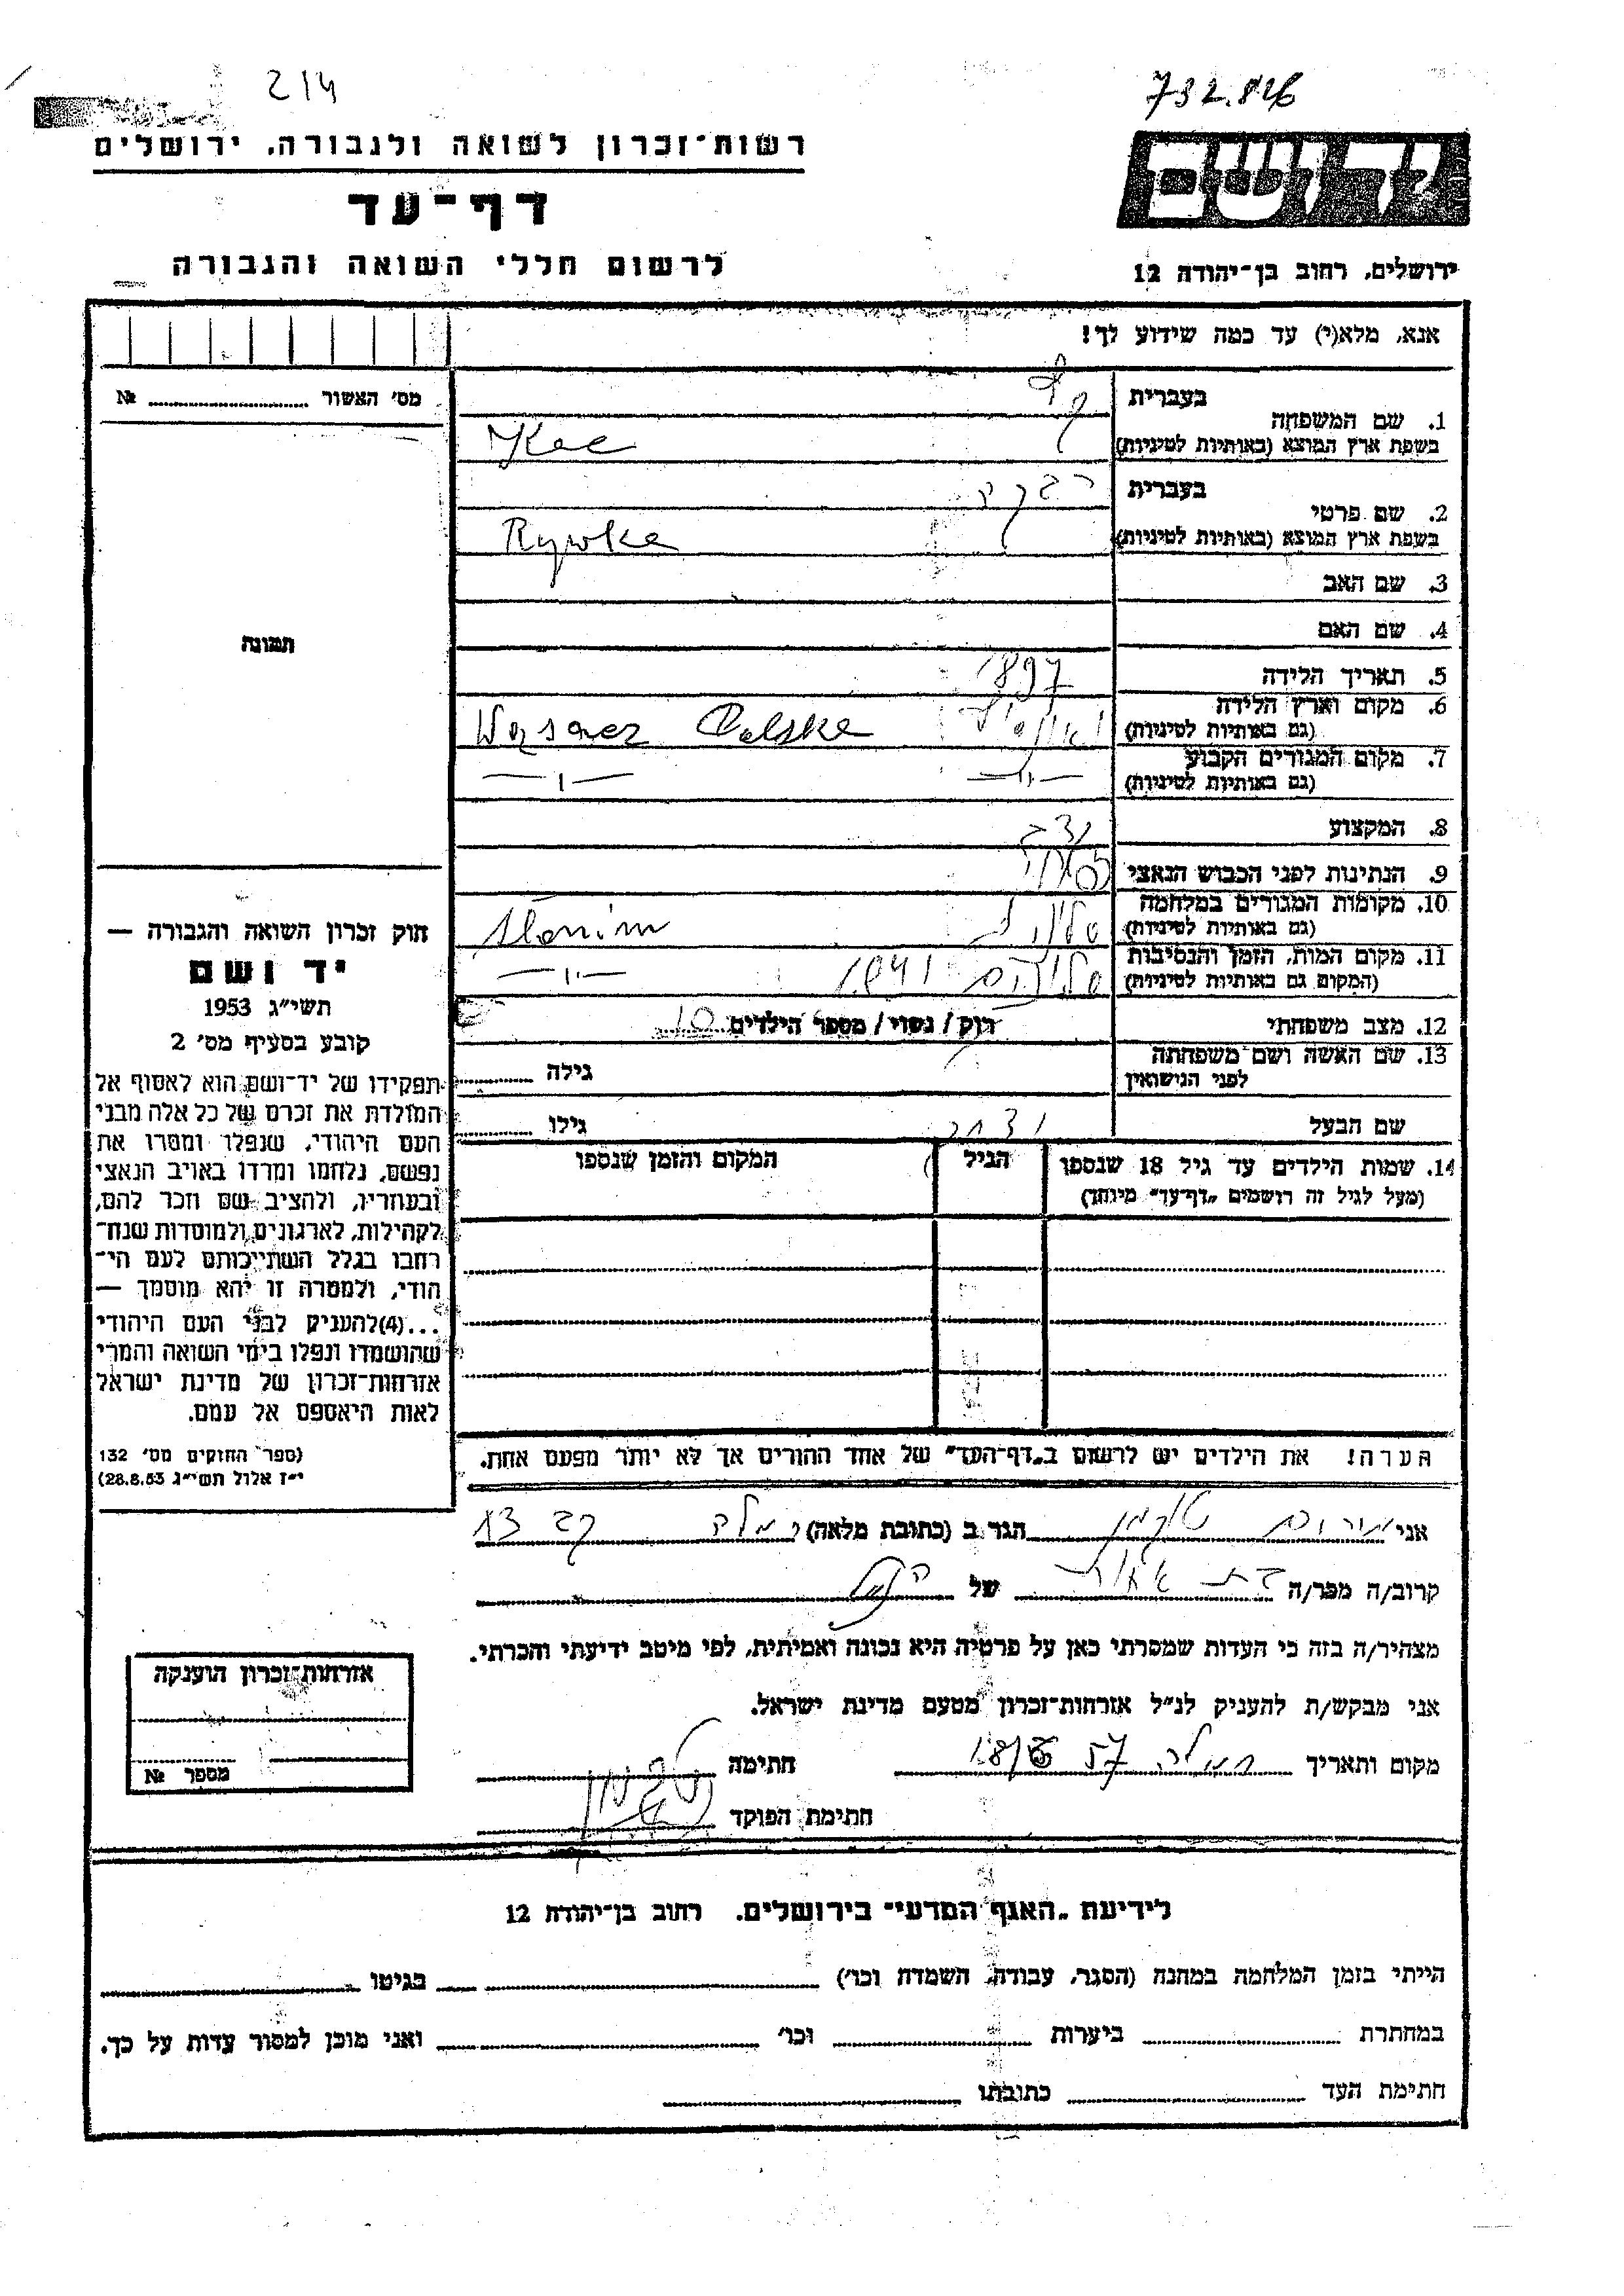 214
732.826
רשות־זכרון לשואה ולגבורה, ירושלים
יד ושם
דף־עד
לרשום חללי השואה והגבורה
ירושלים, רחוב בן־יהודה 12
אנא, מלא(י) עד כמה שידוע לך!
מס׳ האשור № 
בעברית
1. שם המשפחה
בשפת ארץ המוצא (באותיות לטיניות)
בעברית רבקה
2. שם פרטי
בשפת ארץ המוצא (באותיות לטיניות) Rywka
3. שם האב
4. שם האם
תמונה
5. תאריך הלידה 1897
6. מקום וארץ הלידה
(גם באותיות לטיניות) Polska
7. מקום המגורים הקבוע
(גם באותיות לטיניות) —"— —"—
8. המקצוע
9. הנתינות לפני הכבוש הנאצי
10. מקומות המגורים במלחמה
(גם באותיות לטיניות) סלונים Slonim
11. מקום המות, הזמן והנסיבות
(המקום גם באותיות לטיניות) סלונים 1941 —"—
12. מצב משפחתי רוק/ נשוי/ מספר הילדים 10
13. שם האשה ושם משפחתה
לפני הנישואין גילה
שם הבעל גילו
14. שמות הילדים עד גיל 18 שנספו הגיל המקום והזמן שנספו
(מעל לגיל זה רושמים „דף־עד" מיוחד)
חוק זכרון השואה והגבורה —
יד ושם
תשי״ג 1953
קובע בסעיף מס׳ 2
תפקידו של יד־ושם הוא לאסוף אל
המולדת את זכרם של כל אלה מבני
העם היהודי, שנפלו ומסרו את
נפשם, נלחמו ומרדו באויב הנאצי
ובעוזריו, ולהציב שם וזכר להם,
לקהילות, לארגונים ולמוסדות שנח־
רחבו בגלל השתייכותם לעם הי־
הודי, ולמטרה זו יהא מוסמך —
...(4)להעניק לבני העם היהודי
שהושמדו ונפלו בימי השואה והמרי
אזרחות־זכרון של מדינת ישראל
לאות היאספם אל עמם.
(ספר החוקים מס׳ 132
י״ז אלול תשי״ג 28.8.53)
הערה! את הילדים יש לרשום ב„דף־העד" של אחד ההורים אך לא יותר מפעם אחת.
אני מרים הגר ב (כתובת מלאה) רמלה 13
קרוב/ה מכר/ה בת אחות של הנ״ל
מצהיר/ה בזה כי העדות שמסרתי כאן על פרטיה היא נכונה ואמיתית, לפי מיטב ידיעתי והכרתי.
אני מבקש/ת להעניק לנ״ל אזרחות־זכרון מטעם מדינת ישראל.
מקום ותאריך רמלה 57 חתימה
חתימת הפוקד
אזרחות־זכרון הוענקה
מספר №
לידיעת „האגף המדעי" בירושלים. רחוב בן־יהודה 12
הייתי בזמן המלחמה במחנה (הסגר, עבודה, השמדה וכו׳) בגיטו
במחתרת ביערות וכו׳ ואני מוכן למסור עדות על כך.
חתימת העד כתובתו